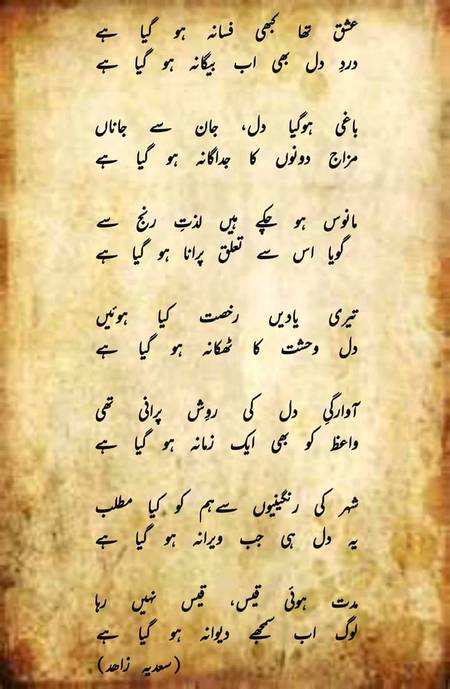 عشق تھا کبھی فسانہ ہو گیا ہے
دردِ دل بھی اب بیگانہ ہو گیا ہے
باغی ہوگیا دل، جان سے جاناں
مزاج دونوں کا جداگانہ ہو گیا ہے
مانوس ہو چکے ہیں لذتِ رنج سے
گویا اس سے تعلق پرانا ہو گیا ہے
تیری یادیں رخصت کیا ہوئیں
دل وحشت کا ٹھکانہ ہو گیا ہے
آوارگیِ دل کی روِش پرانی تھی
واعظ کو بھی ایک زمانہ ہو گیا ہے
شہر کی رنگینیوں سے ہم کو کیا مطلب
یہ دل ہی جب ویرانہ ہو گیا ہے
مدت ہوئی قیس، قیس نہیں رہا
لوگ اب سمجھے دیوانہ ہو گیا ہے
(سعدیہ زاھد)